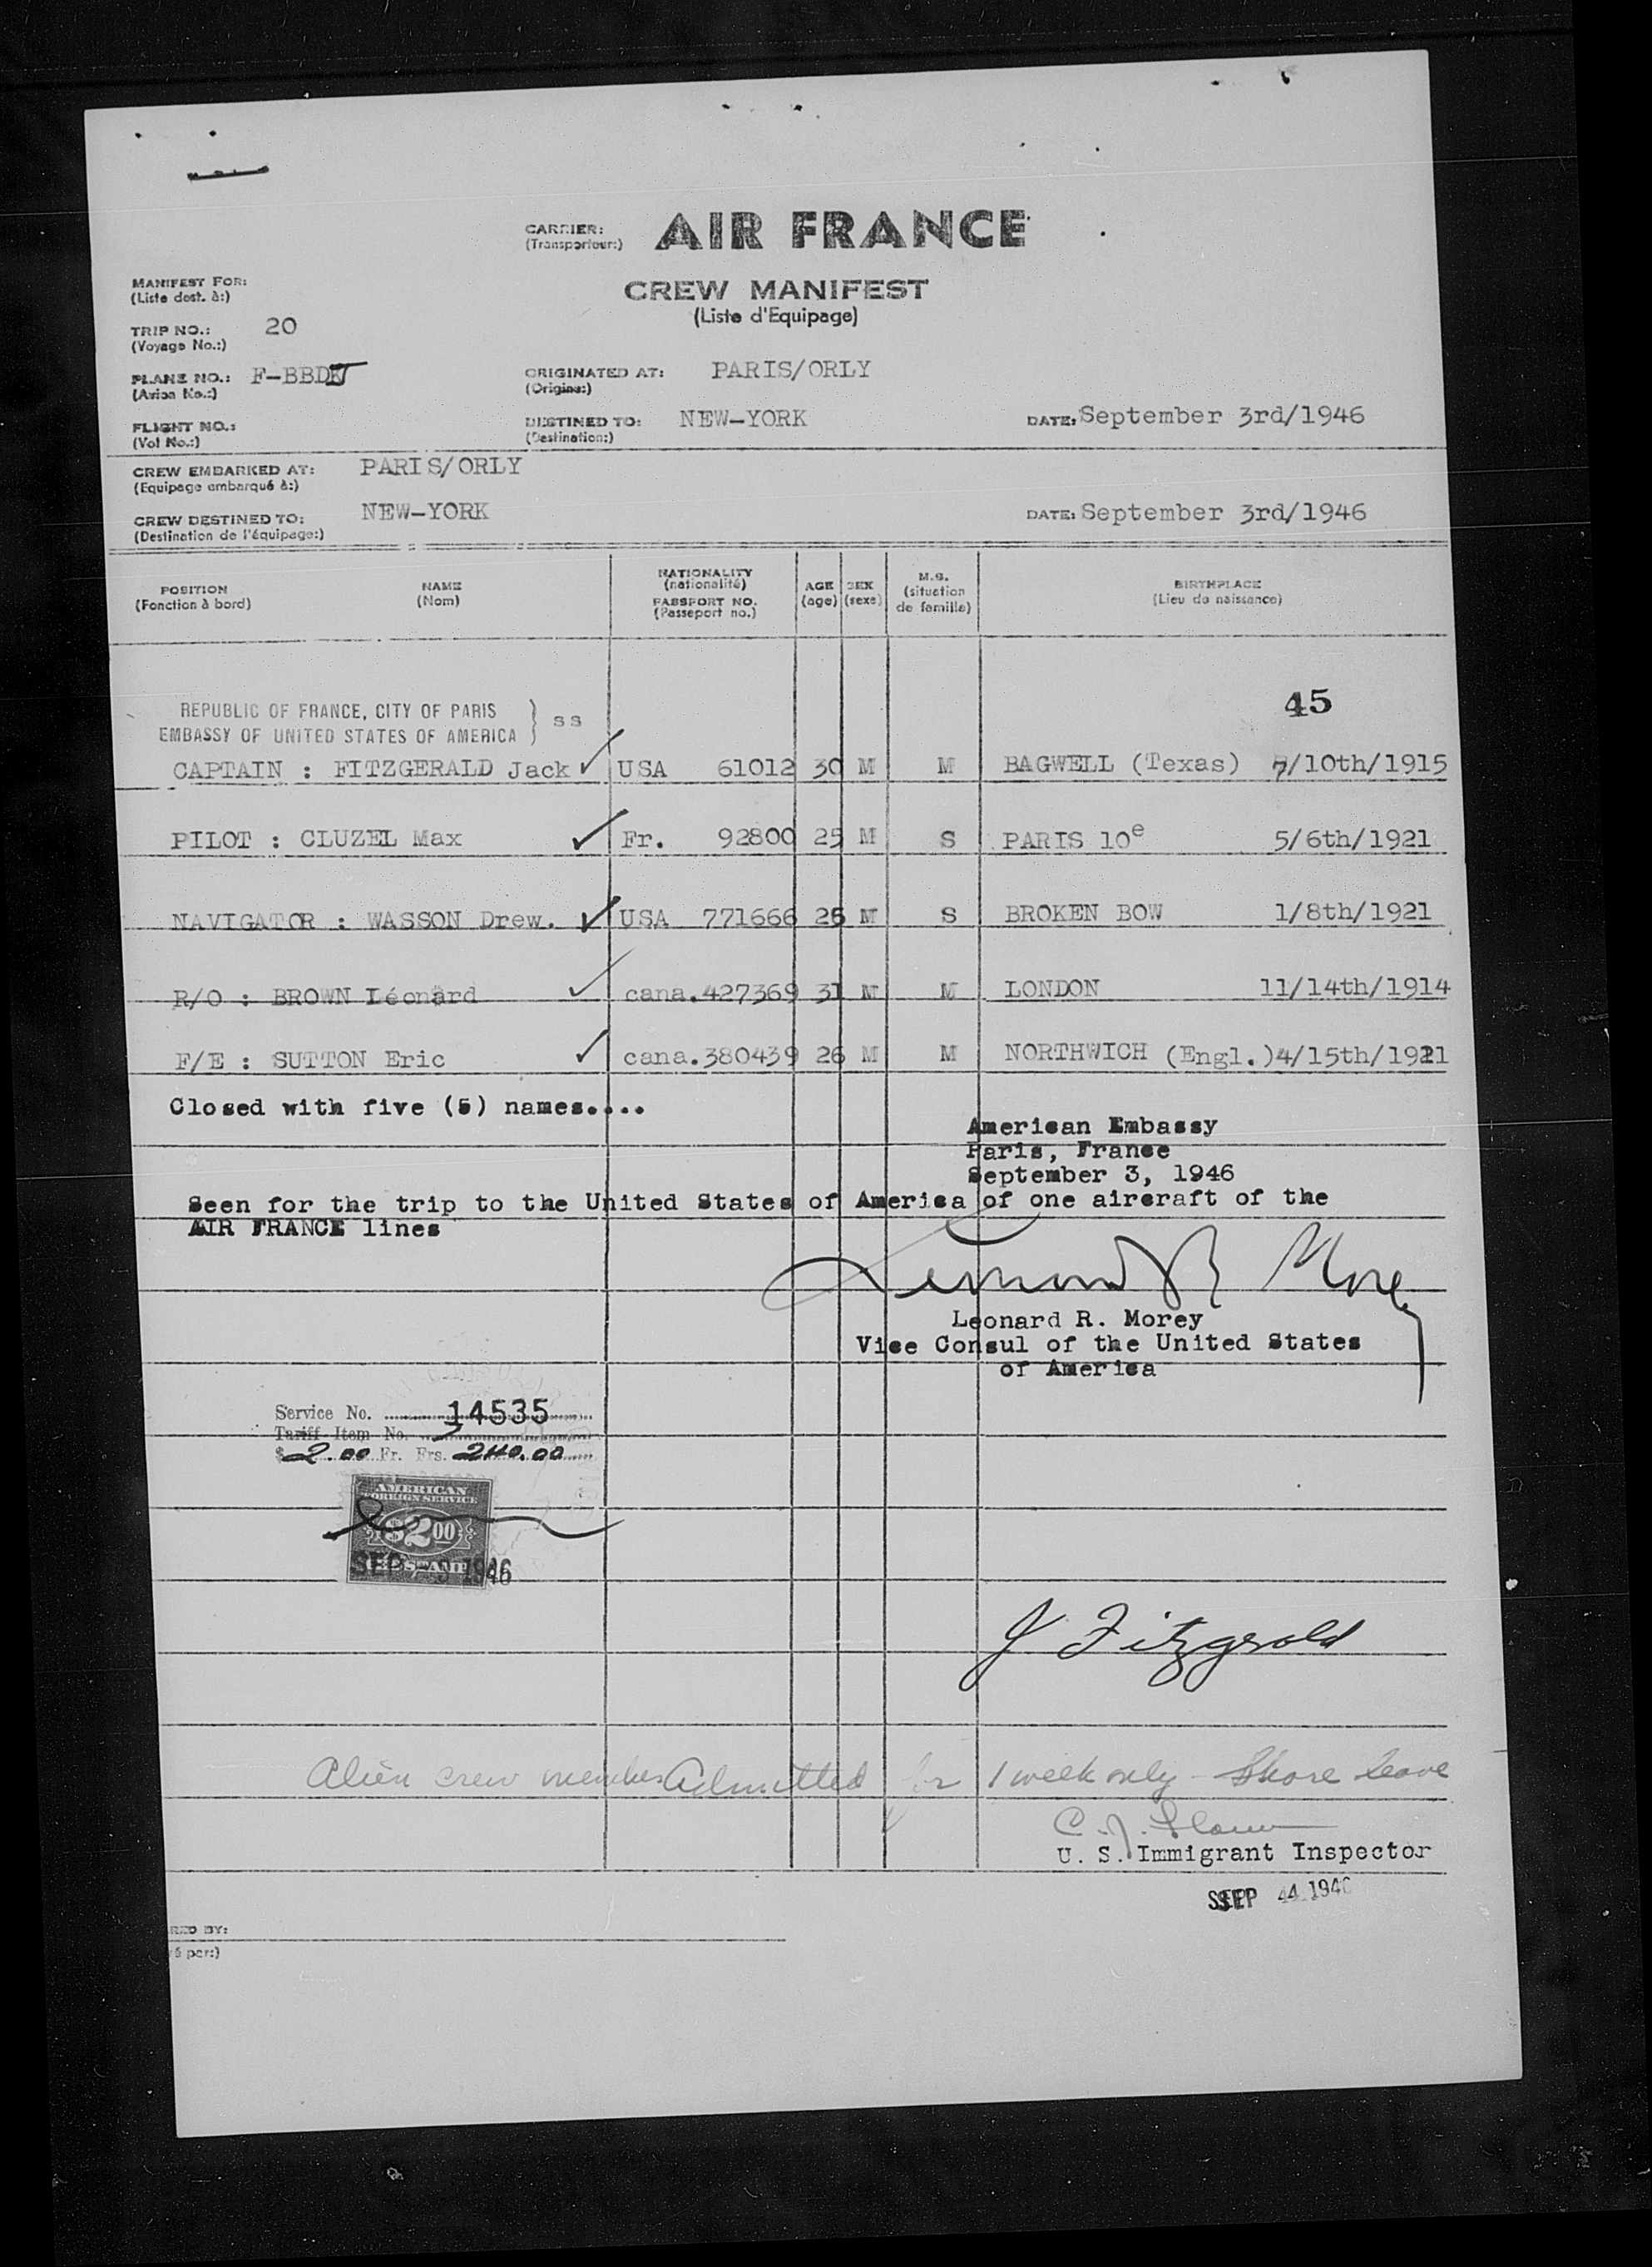 CARRIER: AIR FRANCE
(Transporteur:)
CREW MANIFEST
(Liste d'Equipage)
MANIFEST FOR:
(Liste dest. à:)
TRIP NO.: 20
(Voyage No.:)
PLANE NO.: F-BBD
(Avion No.:)
ORIGINATED AT: PARIS/ORLY
(Origine:)
FLIGHT NO.:
(Vol No.:)
DESTINED TO: NEW-YORK
(Destination:)
DATE: September 3rd/1946
CREW EMBARKED AT: PARIS/ORLY
(Equipage embarqué à:)
CREW DESTINED TO: NEW-YORK
(Destination de l'équipage:)
DATE: September 3rd/1946
POSITION
(Fonction à bord)
NAME
(Nom)
NATIONALITY
(nationalité)
PASSPORT NO.
(Passeport no.)
AGE
(age)
SEX
(sexe)
M.S.
(situation
de famille)
BIRTHPLACE
(Lieu de naissance)
45
REPUBLIC OF FRANCE, CITY OF PARIS
EMBASSY OF UNITED STATES OF AMERICA } SS
CAPTAIN : FITZGERALD Jack ✓ USA 61012 30 M M BAGWELL (Texas) 7/10th/1915
PILOT : CLUZEL Max ✓ Fr. 92800 25 M S PARIS 10e 5/6th/1921
NAVIGATOR : WASSON Drew. ✓ USA 771666 25 M S BROKEN BOW 1/8th/1921
R/O : BROWN Léonard ✓ cana.427369 31 M M LONDON 11/14th/1914
F/E : SUTTON Eric ✓ cana.380439 26 M M NORTHWICH (Engl.) 4/15th/1921
Closed with five (5) names....
American Embassy
Paris, France
September 3, 1946
Seen for the trip to the United States of America of one aircraft of the
AIR FRANCE lines
Leonard R. Morey
Leonard R. Morey
Vice Consul of the United States
of America
Service No. 14535
Tariff Item No. 7
$ 2.00 Fr. Frs. 240.00
AMERICAN
FOREIGN SERVICE
$2.00
FEE STAMP
SEP -3 1946
J Fitzgerald
Alien crew members Admitted for 1 week only - Shore Leave
C. J.
U. S. Immigrant Inspector
SEP 4 1946
RED BY:
é par:)